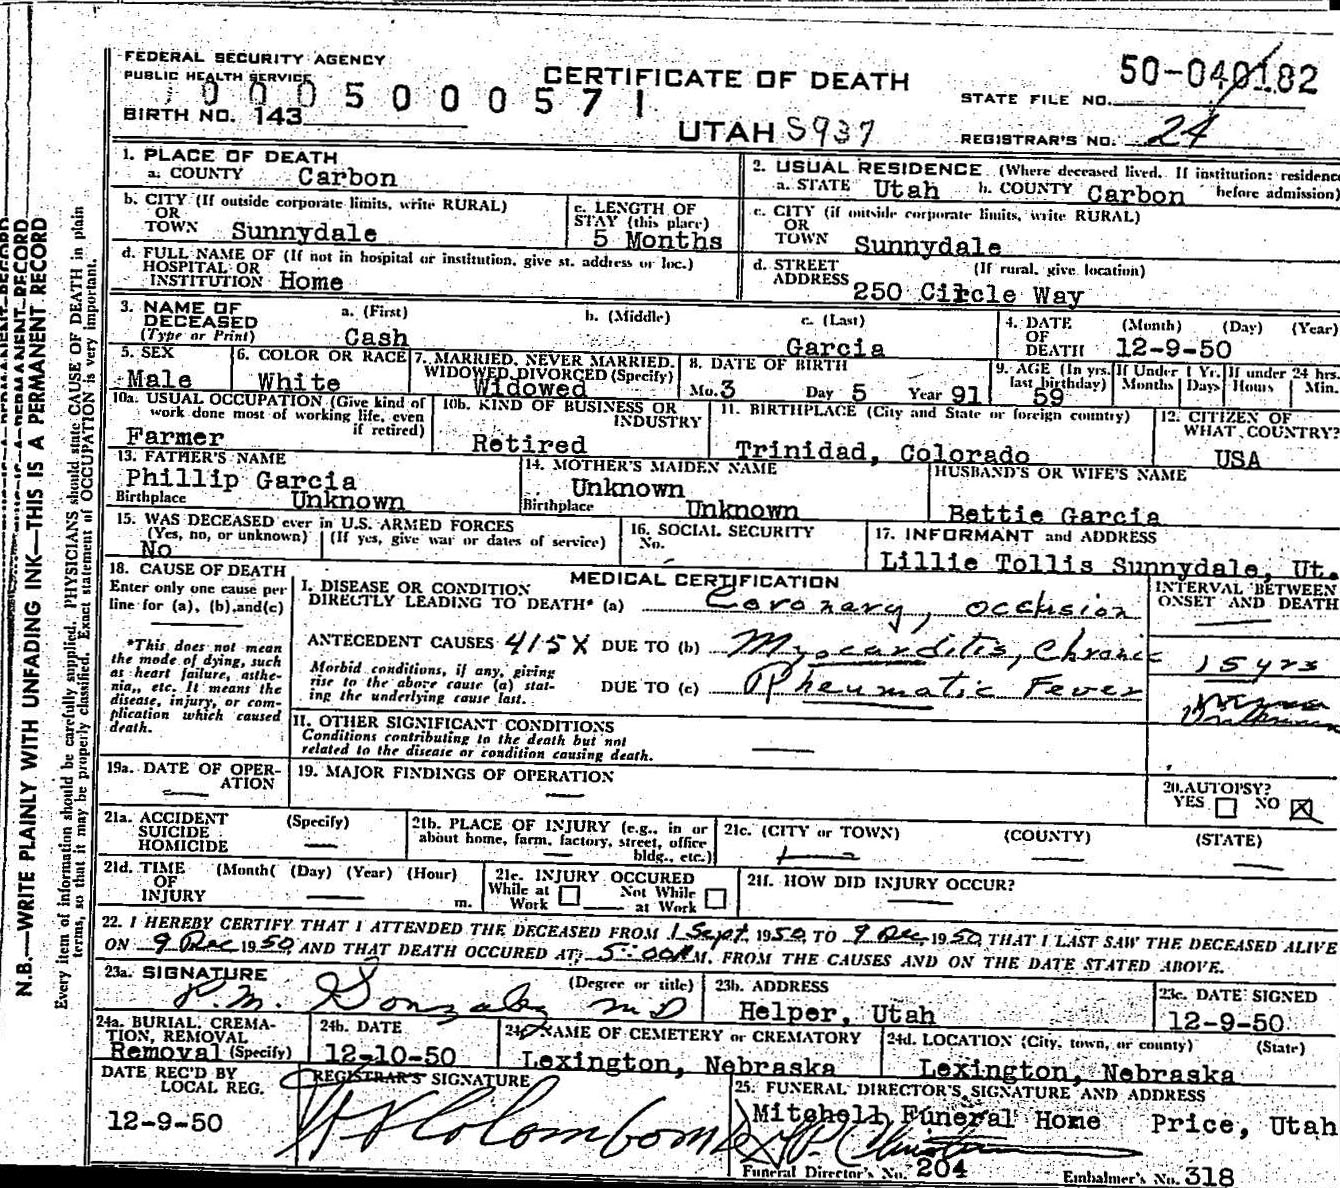 FEDERAL SECURITY AGENCY
PUBLIC HEALTH SERVICE
CERTIFICATE OF DEATH
50-040182
STATE FILE NO.
0005000571
BIRTH NO. 143
UTAH S937
REGISTRAR'S NO. 24
1. PLACE OF DEATH
a. COUNTY Carbon
2. USUAL RESIDENCE (Where deceased lived. If institution: residence before admission)
a. STATE Utah b. COUNTY Carbon
b. CITY (If outside corporate limits, write RURAL)
OR
TOWN Sunnydale
c. LENGTH OF
STAY (this place)
5 Months
c. CITY (if outside corporate limits, write RURAL)
OR
TOWN Sunnydale
d. FULL NAME OF (If not in hospital or institution, give st. address or loc.)
HOSPITAL OR
INSTITUTION Home
d. STREET (If rural, give location)
ADDRESS 250 Circle Way
3. NAME OF
DECEASED
(Type or Print)
a. (First) b. (Middle) c. (Last)
Cash Garcia
4. DATE (Month) (Day) (Year)
OF
DEATH 12-9-50
5. SEX
Male
6. COLOR OR RACE
White
7. MARRIED, NEVER MARRIED,
WIDOWED, DIVORCED (Specify)
Widowed
8. DATE OF BIRTH
Mo. 3 Day 5 Year 91
9. AGE (In yrs. last birthday)
59
If Under 1 Yr.
Months Days
If under 24 hrs.
Hours Min.
10a. USUAL OCCUPATION (Give kind of
work done most of working life, even
if retired)
Farmer
10b. KIND OF BUSINESS OR
INDUSTRY
Retired
11. BIRTHPLACE (City and State or foreign country)
Trinidad, Colorado
12. CITIZEN OF
WHAT COUNTRY?
USA
13. FATHER'S NAME
Phillip Garcia
Birthplace Unknown
14. MOTHER'S MAIDEN NAME
Unknown
Birthplace Unknown
HUSBAND'S OR WIFE'S NAME
Bettie Garcia
15. WAS DECEASED ever in U.S. ARMED FORCES
(Yes, no, or unknown) (If yes, give war or dates of service)
No
16. SOCIAL SECURITY
No.
17. INFORMANT and ADDRESS
Lillie Tollis Sunnydale, Ut.
18. CAUSE OF DEATH
Enter only one cause per
line for (a), (b), and (c)
*This does not mean
the mode of dying, such
as heart failure, asthe-
nia, etc. It means the
disease, injury, or com-
plication which caused
death.
MEDICAL CERTIFICATION
I. DISEASE OR CONDITION
DIRECTLY LEADING TO DEATH* (a) Coronary, occlusion
ANTECEDENT CAUSES 415X DUE TO (b) Myocarditis, Chronic
Morbid conditions, if any, giving
rise to the above cause (a) stat-
ing the underlying cause last.
DUE TO (c) Rheumatic Fever
INTERVAL BETWEEN
ONSET AND DEATH
15 yrs
II. OTHER SIGNIFICANT CONDITIONS
Conditions contributing to the death but not
related to the disease or condition causing death.
19a. DATE OF OPER-
ATION
19. MAJOR FINDINGS OF OPERATION
20. AUTOPSY?
YES NO
21a. ACCIDENT (Specify)
SUICIDE
HOMICIDE
21b. PLACE OF INJURY (e.g., in or
about home, farm, factory, street, office
bldg., etc.)
21c. (CITY or TOWN) (COUNTY) (STATE)
21d. TIME (Month( (Day) (Year) (Hour)
OF
INJURY m.
21e. INJURY OCCURED
While at Not While
Work at Work
21f. HOW DID INJURY OCCUR?
22. I HEREBY CERTIFY THAT I ATTENDED THE DECEASED FROM 1 Sept, 1950, TO 9 Dec, 1950, THAT I LAST SAW THE DECEASED ALIVE
ON 9 Dec 1950, AND THAT DEATH OCCURED AT 5:00 M. FROM THE CAUSES AND ON THE DATE STATED ABOVE.
23a. SIGNATURE (Degree or title)
R. M. Gonzalez MD
23b. ADDRESS
Helper, Utah
23c. DATE SIGNED
12-9-50
24a. BURIAL, CREMA-
TION, REMOVAL
Removal (Specify)
24b. DATE
12-10-50
24c. NAME OF CEMETERY or CREMATORY
Lexington, Nebraska
24d. LOCATION (City, town, or county) (State)
Lexington, Nebraska
DATE REC'D BY
LOCAL REG.
12-9-50
REGISTRAR'S SIGNATURE
25. FUNERAL DIRECTOR'S SIGNATURE AND ADDRESS
Mitchell Funeral Home Price, Utah
Funeral Director's No. 204 Embalmer's No. 318
N.B.—WRITE PLAINLY WITH UNFADING INK—THIS IS A PERMANENT RECORD
Every item of information should be carefully supplied. PHYSICIANS should state CAUSE OF DEATH in plain
terms, so that it may be properly classified. Exact statement of OCCUPATION is very important.